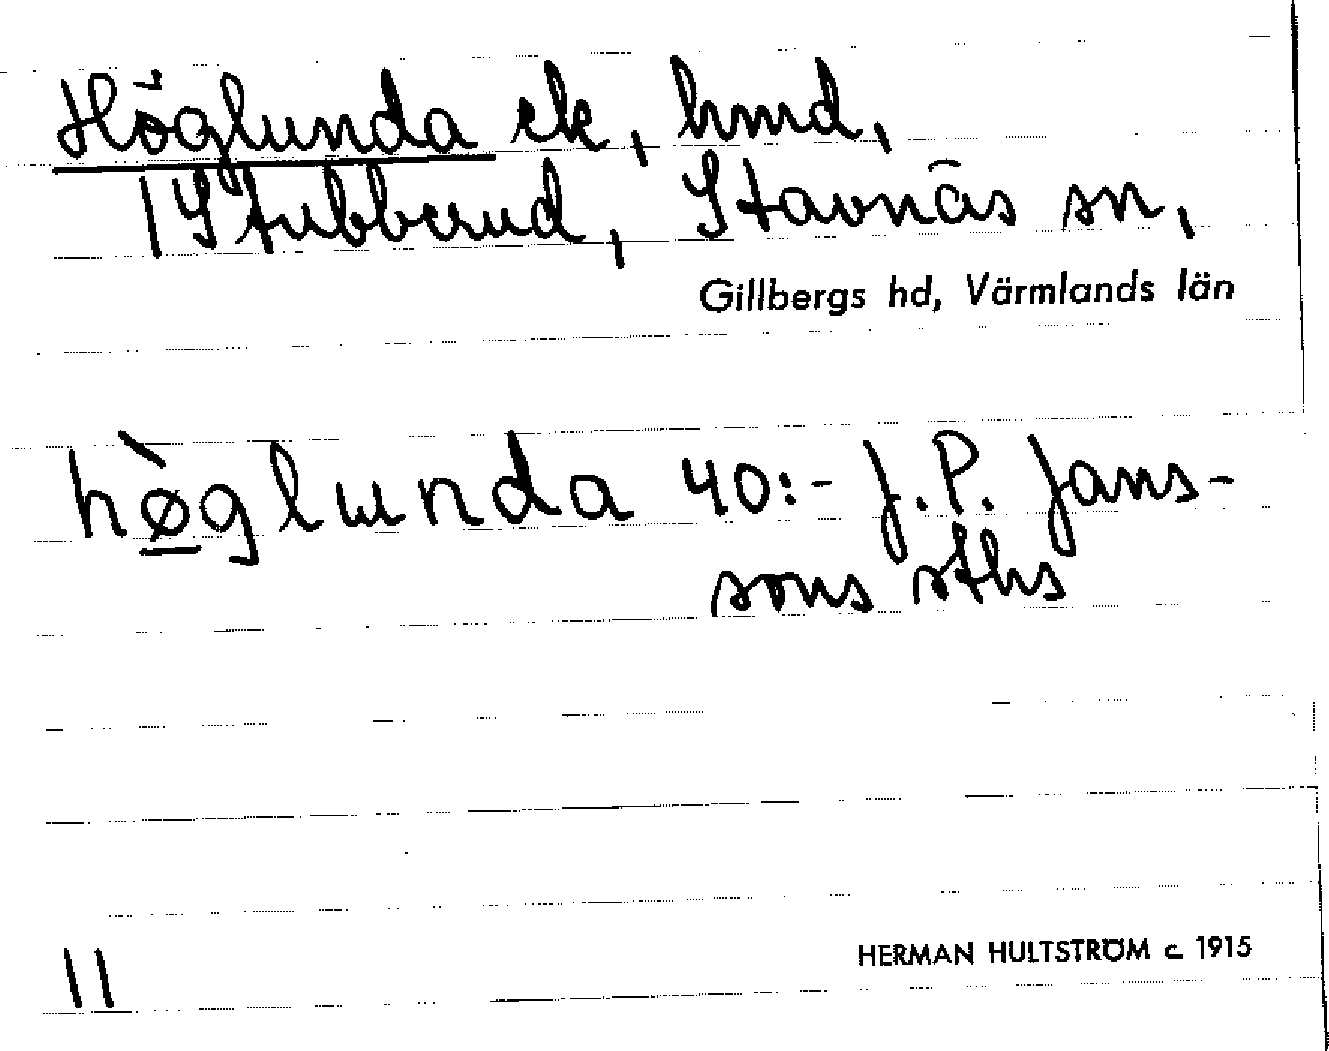 Höglunda ek, hmd,
1 Stubberud, Stavnäs sn,
Gillbergs hd, Värmlands län
hø̀glɯnda 40:- J. P. Jans-
sons sths
11
HERMAN HULTSTRÖM c. 1915